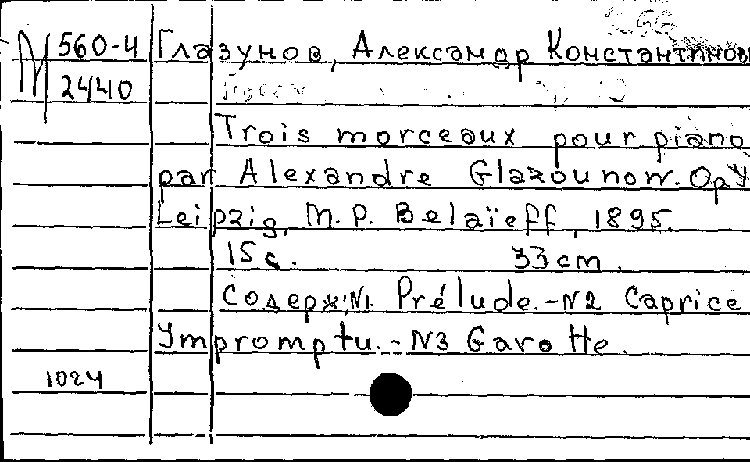 М 560-4 Глазунов, Александр Константинов
2440
Trois morceaux pour piano
par Alexandre Glazounow. Op
Leipzig, M. P. Belaïeff, 1895.
15 с. 33 cm.
Содерж: N1 Prélude. - N2 Caprice
Impromptu. - N3 Gavotte.
1024